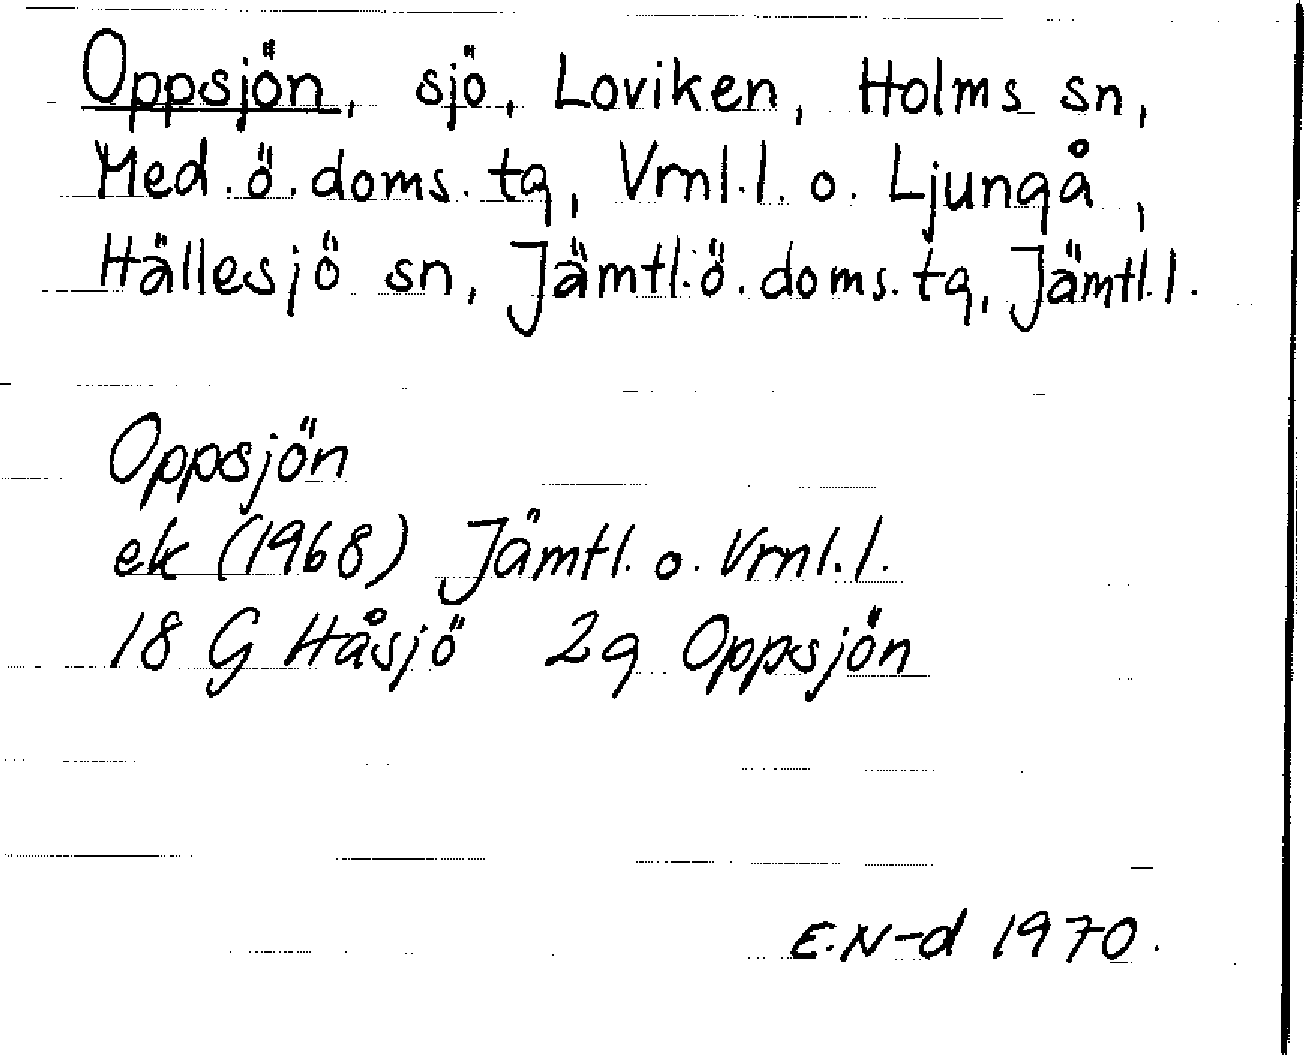 Oppsjön, sjö, Loviken, Holms sn,
Med.ö.doms.tg, Vrnl.l. o. Ljungå,
Hällesjö sn, Jämtl.ö.doms.tg, Jämtl.l.
Oppsjön
ek (1968) Jämtl. o. Vrnl.l.
18 G Håsjö 2g Oppsjön
E.N-d 1970.